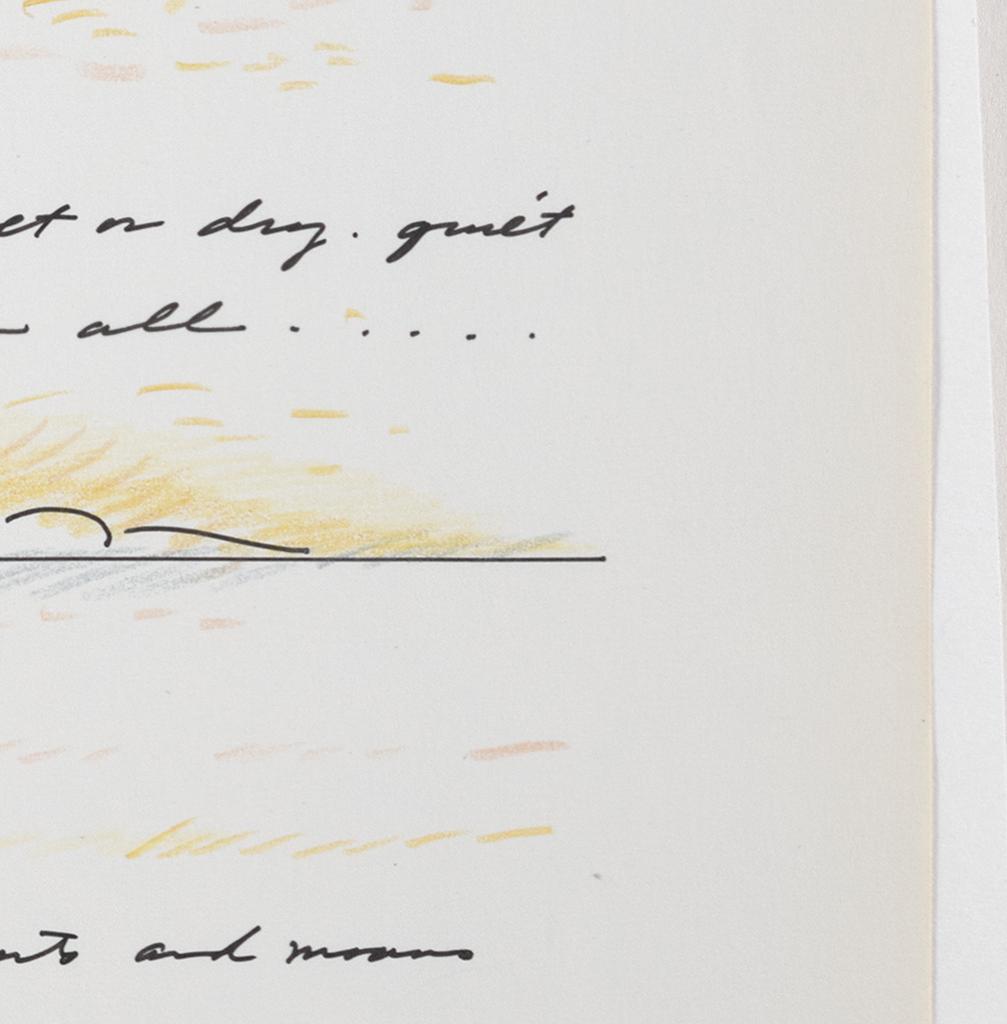 et or dry. quiet
all . . . . .
and moans